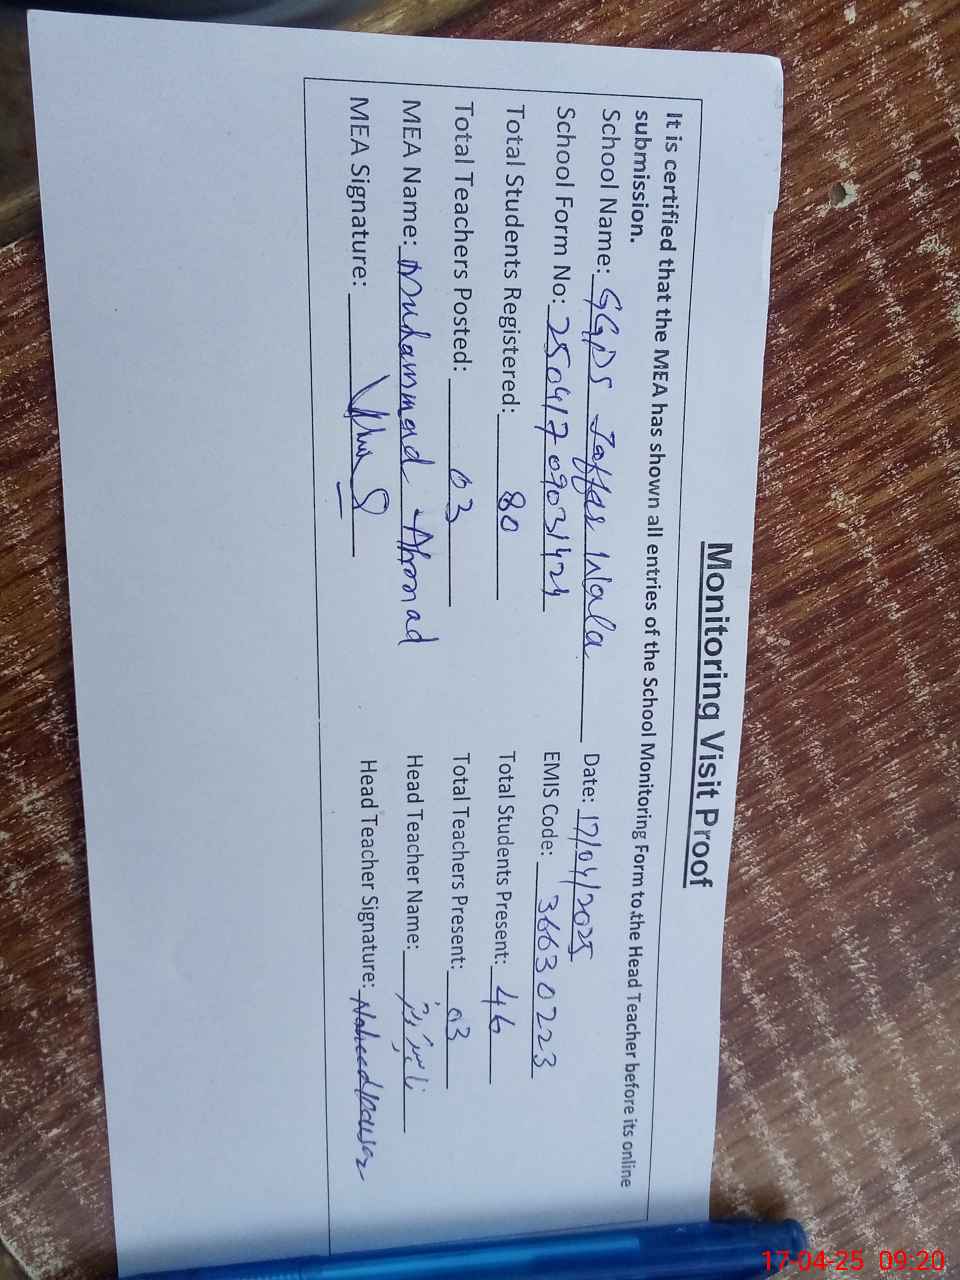 Monitoring Visit Proof
It is certified that the MEA has shown all entries of the School Monitoring Form to the Head Teacher before its online
submission.
School Name: GGPS Jaffar Wala Date: 17/04/2025
School Form No: 25041709031424 EMIS Code: 36630223
Total Students Registered: 80 Total Students Present: 46
Total Teachers Posted: 03 Total Teachers Present: 03
MEA Name: Muhammad Ahmad Head Teacher Name:
MEA Signature: Head Teacher Signature: Naheed Kausar
17-04-25 09:20